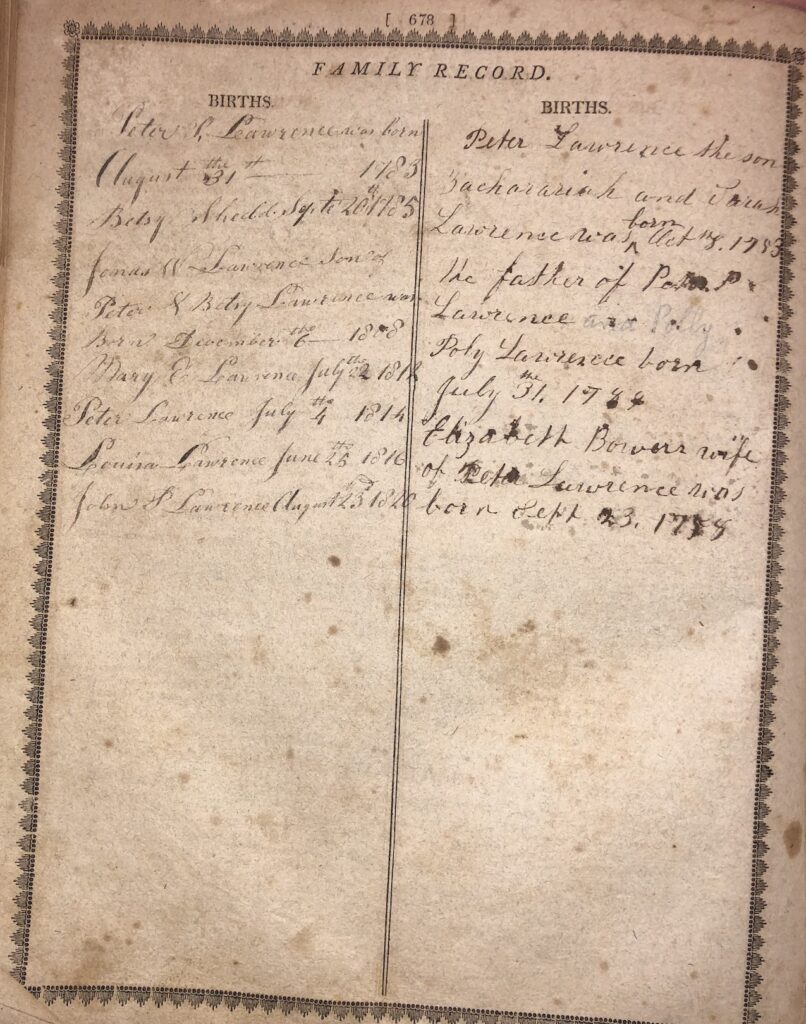 [ 678 ]
FAMILY RECORD.
BIRTHS.
Peter P. Lawrence was born
August the 31st 1783
Betsy Shedd Sept 20th 1785
Jonas W Lawrence Son of
Peter & Betsy Lawrence was
Born December the 6 1808
Mary E Lawrence July the 22 1812
Peter Lawrence July the 4 1814
Louisa Lawrence June the 25 1816
John S Lawrence August 23d 1820
BIRTHS.
Peter Lawrence the son
Zacharariah and Sarah
Lawrence was born Oct 18. 1753
the father of P.
Lawrence and Polly
Poly Lawrence born
July the 31, 17
Elizabeth Bowers wife
of Peter Lawrence was
born Sept 23. 17